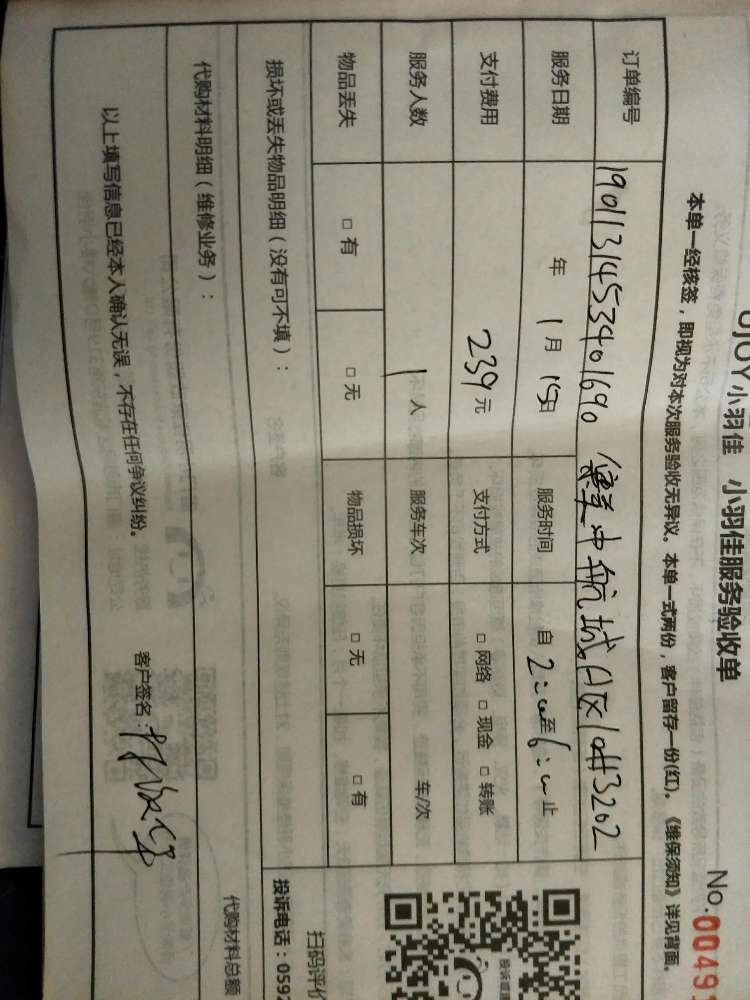 UJOY小羽佳 小羽佳服务验收单
No.0049
本单一经核签，即视为对本次服务验收无异议。本单一式两份，客户留存一份(红)。《维保须知》详见背面。
订单编号 1901131453401690 中航城A区10#3202
服务日期 年 1月 15日 服务时间 自2:00至6:00止
支付费用 239元 支付方式 □网络 □现金 □转账
服务人数 1人 服务车次 车/次
物品丢失 □有 □无 物品损坏 □无 □有
损坏或丢失物品明细（没有可不填）：
扫码评价
投诉电话：0592
代购材料明细（维修业务）：
代购材料总额
以上填写信息已经本人确认无误，不存在任何争议纠纷。
客户签名：